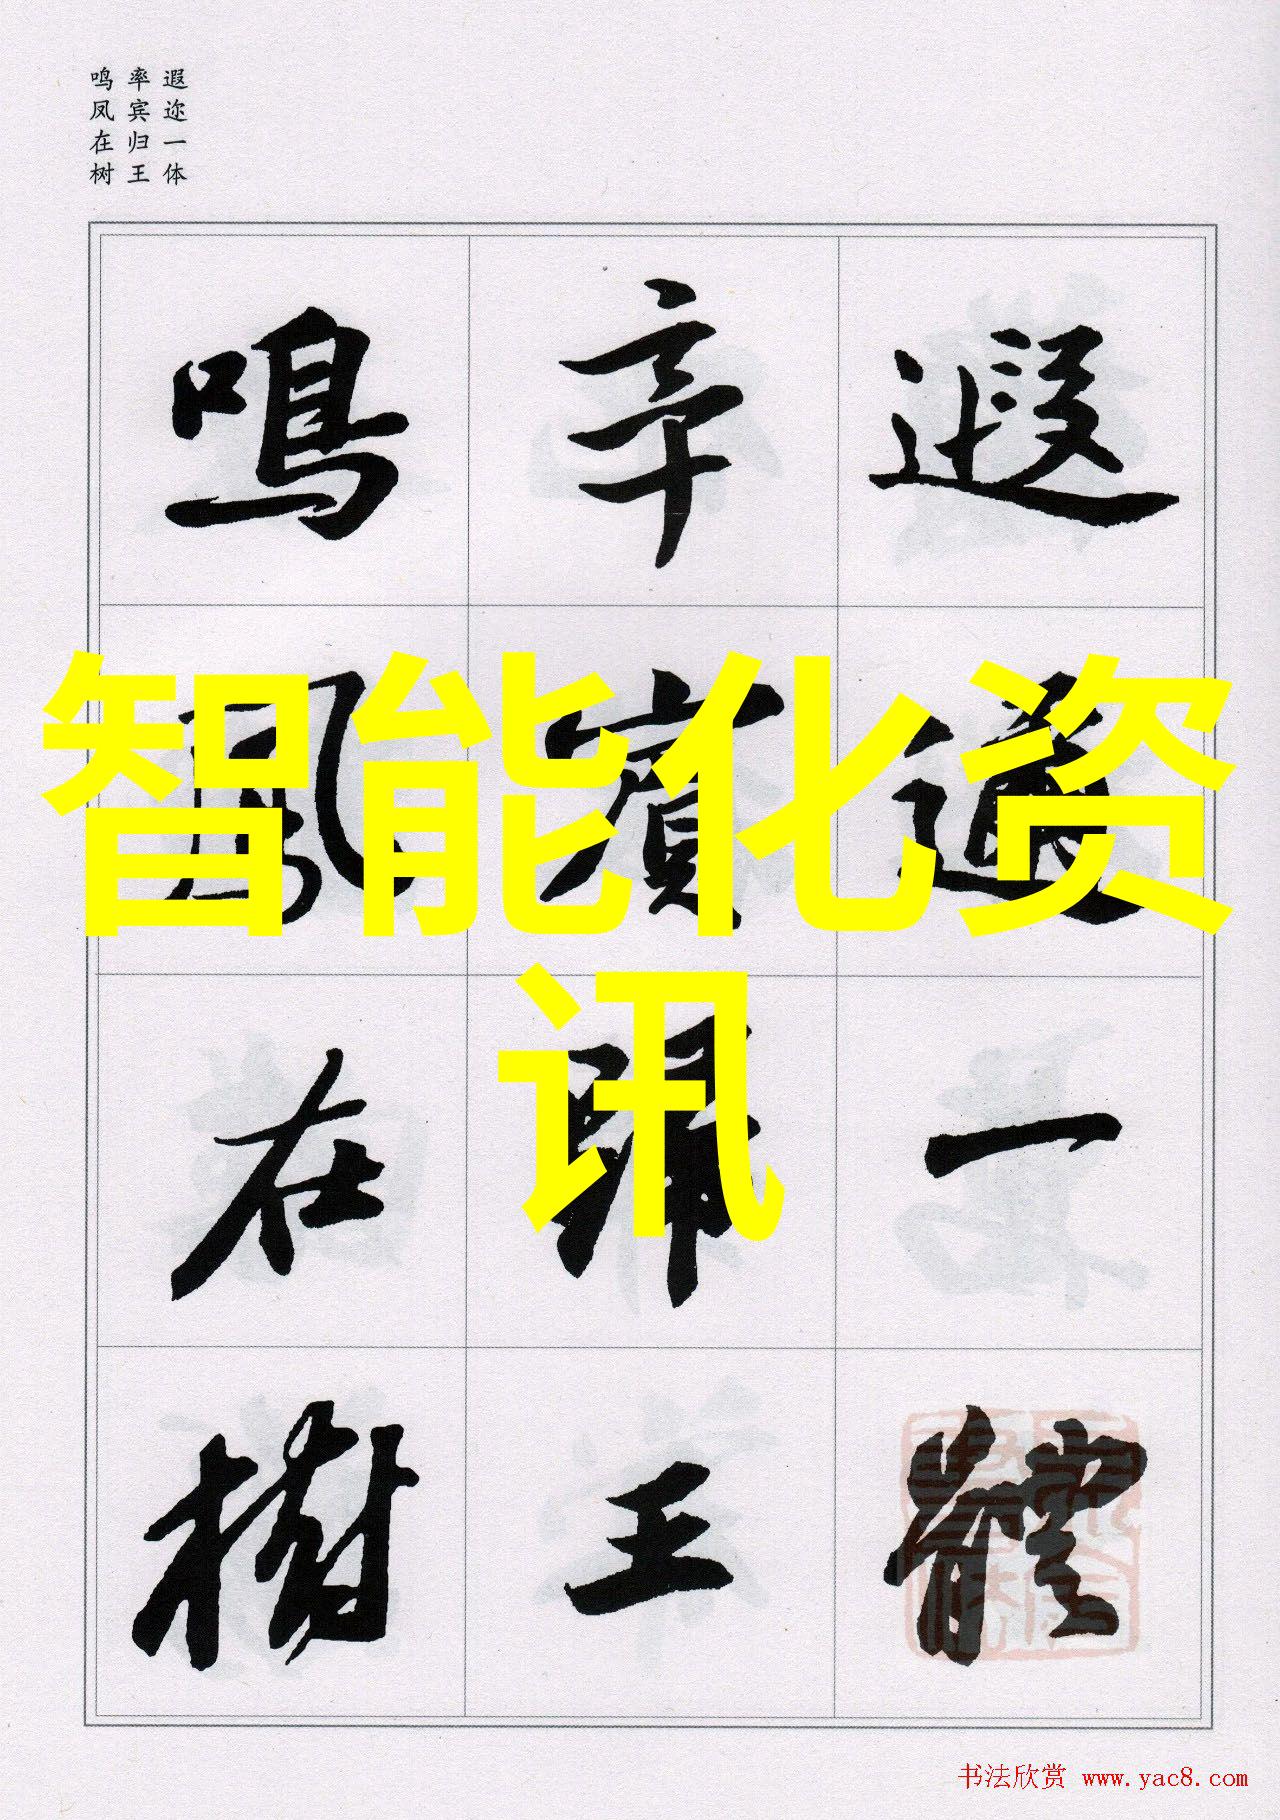 遐迩一体
率宾归王
鸣凤在树
遐邇一體
率賓歸王
鳴鳳在樹
智能化资
讯
书法欣赏 www.yac8.com